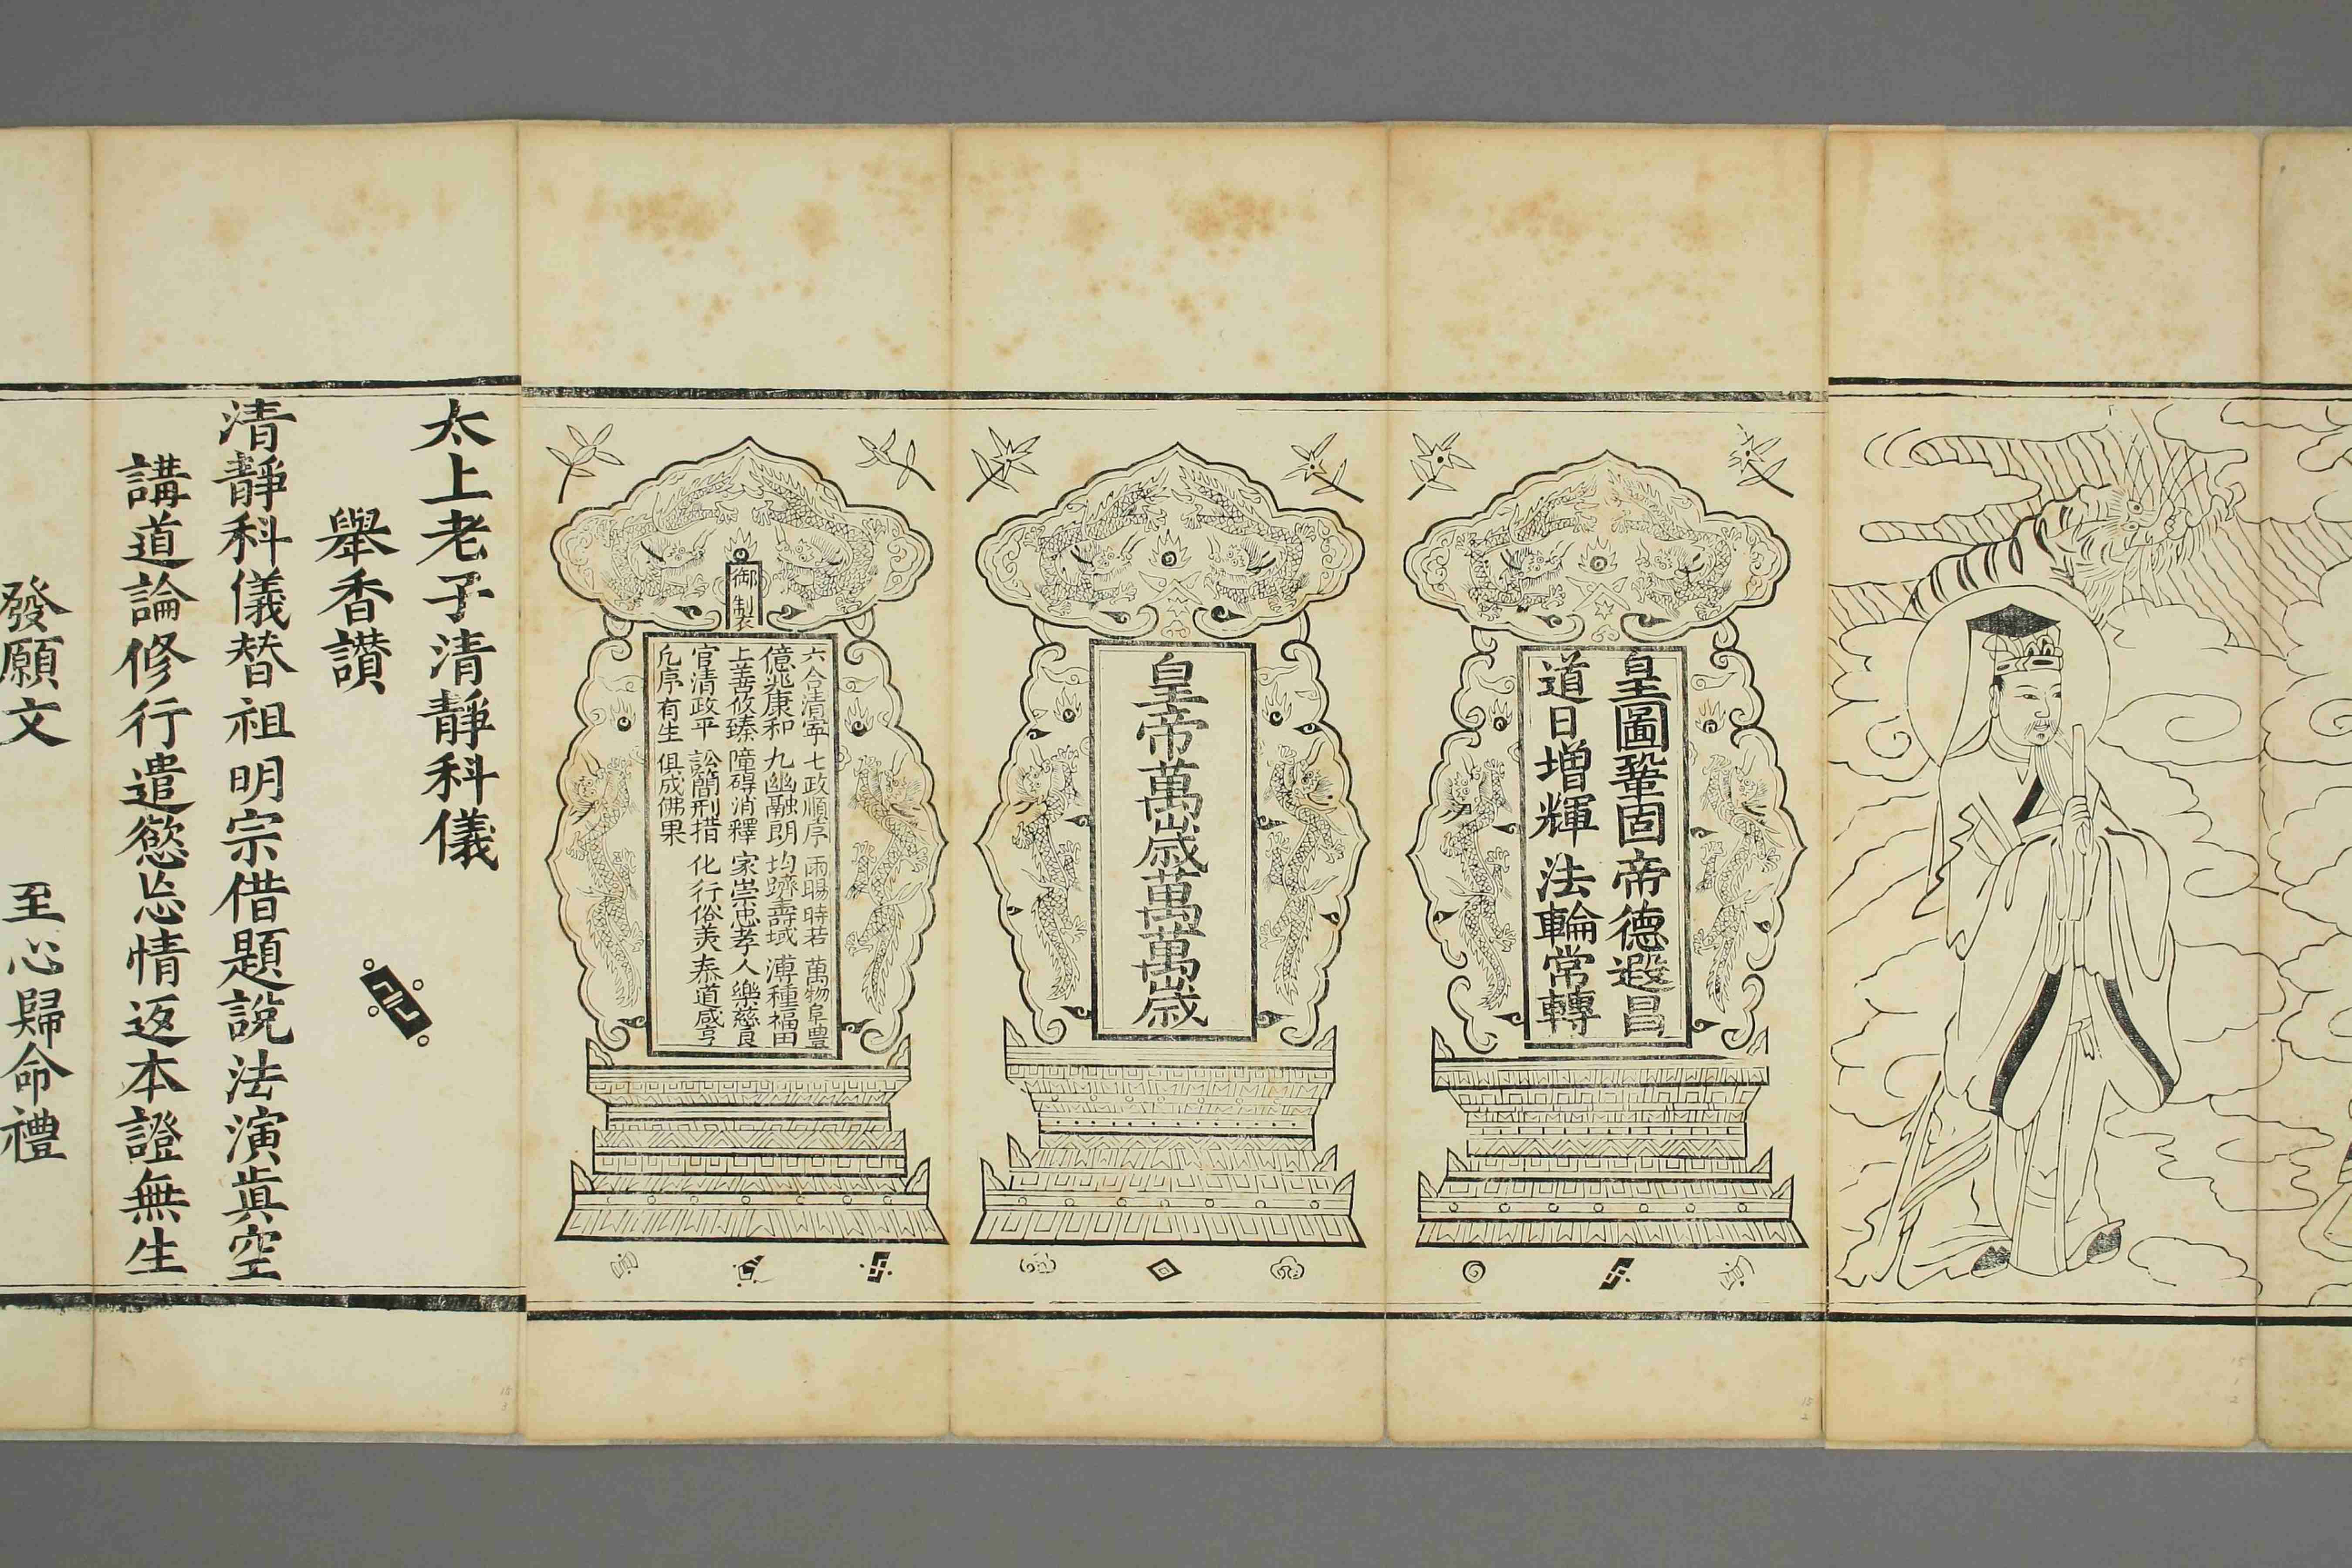 皇圖鞏固帝德遐昌
道日增輝法輪常轉
皇帝萬歲萬萬歲
御制
六合清寧七政順序雨暘時若萬物阜豐
億兆康和九幽融朗均躋壽域溥種福田
上善攸臻障碍消釋家崇忠孝人樂慈良
官清政平訟簡刑措化行俗羙泰道咸亨
凢序有生俱成佛果
太上老子清靜科儀
舉香讃
清靜科儀替祖明宗借題說法演眞空
講道論修行遣慾忘情返本證無生
發願文 至心歸命禮